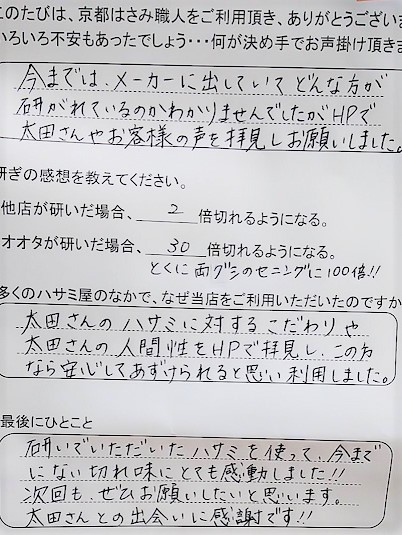 このたびは、京都はさみ職人をご利用頂き、ありがとうござい
いろいろ不安もあったでしょう・・・何が決め手でお声掛け頂き
今までは、メーカーに出していてどんな方が
研がれているのかわかりませんでしたがHPで
太田さんやお客様の声を拝見しお願いしました。
研ぎの感想を教えてください。
他店が研いだ場合、 2 倍切れるようになる。
オオタが研いだ場合、 30 倍切れるようになる。
とくに両グシのセニングに100倍!!
多くのハサミ屋のなかで、なぜ当店をご利用いただいたのですか
太田さんのハサミに対するこだわりや
太田さんの人間性をHPで拝見し、この方
なら安心してあずけられると思い利用しました。
最後にひとこと
研いでいただいたハサミを使って、今まで
にない切れ味にとても感動しました!!
次回も、ぜひお願いしたいと思います。
太田さんとの出会いに感謝です!!